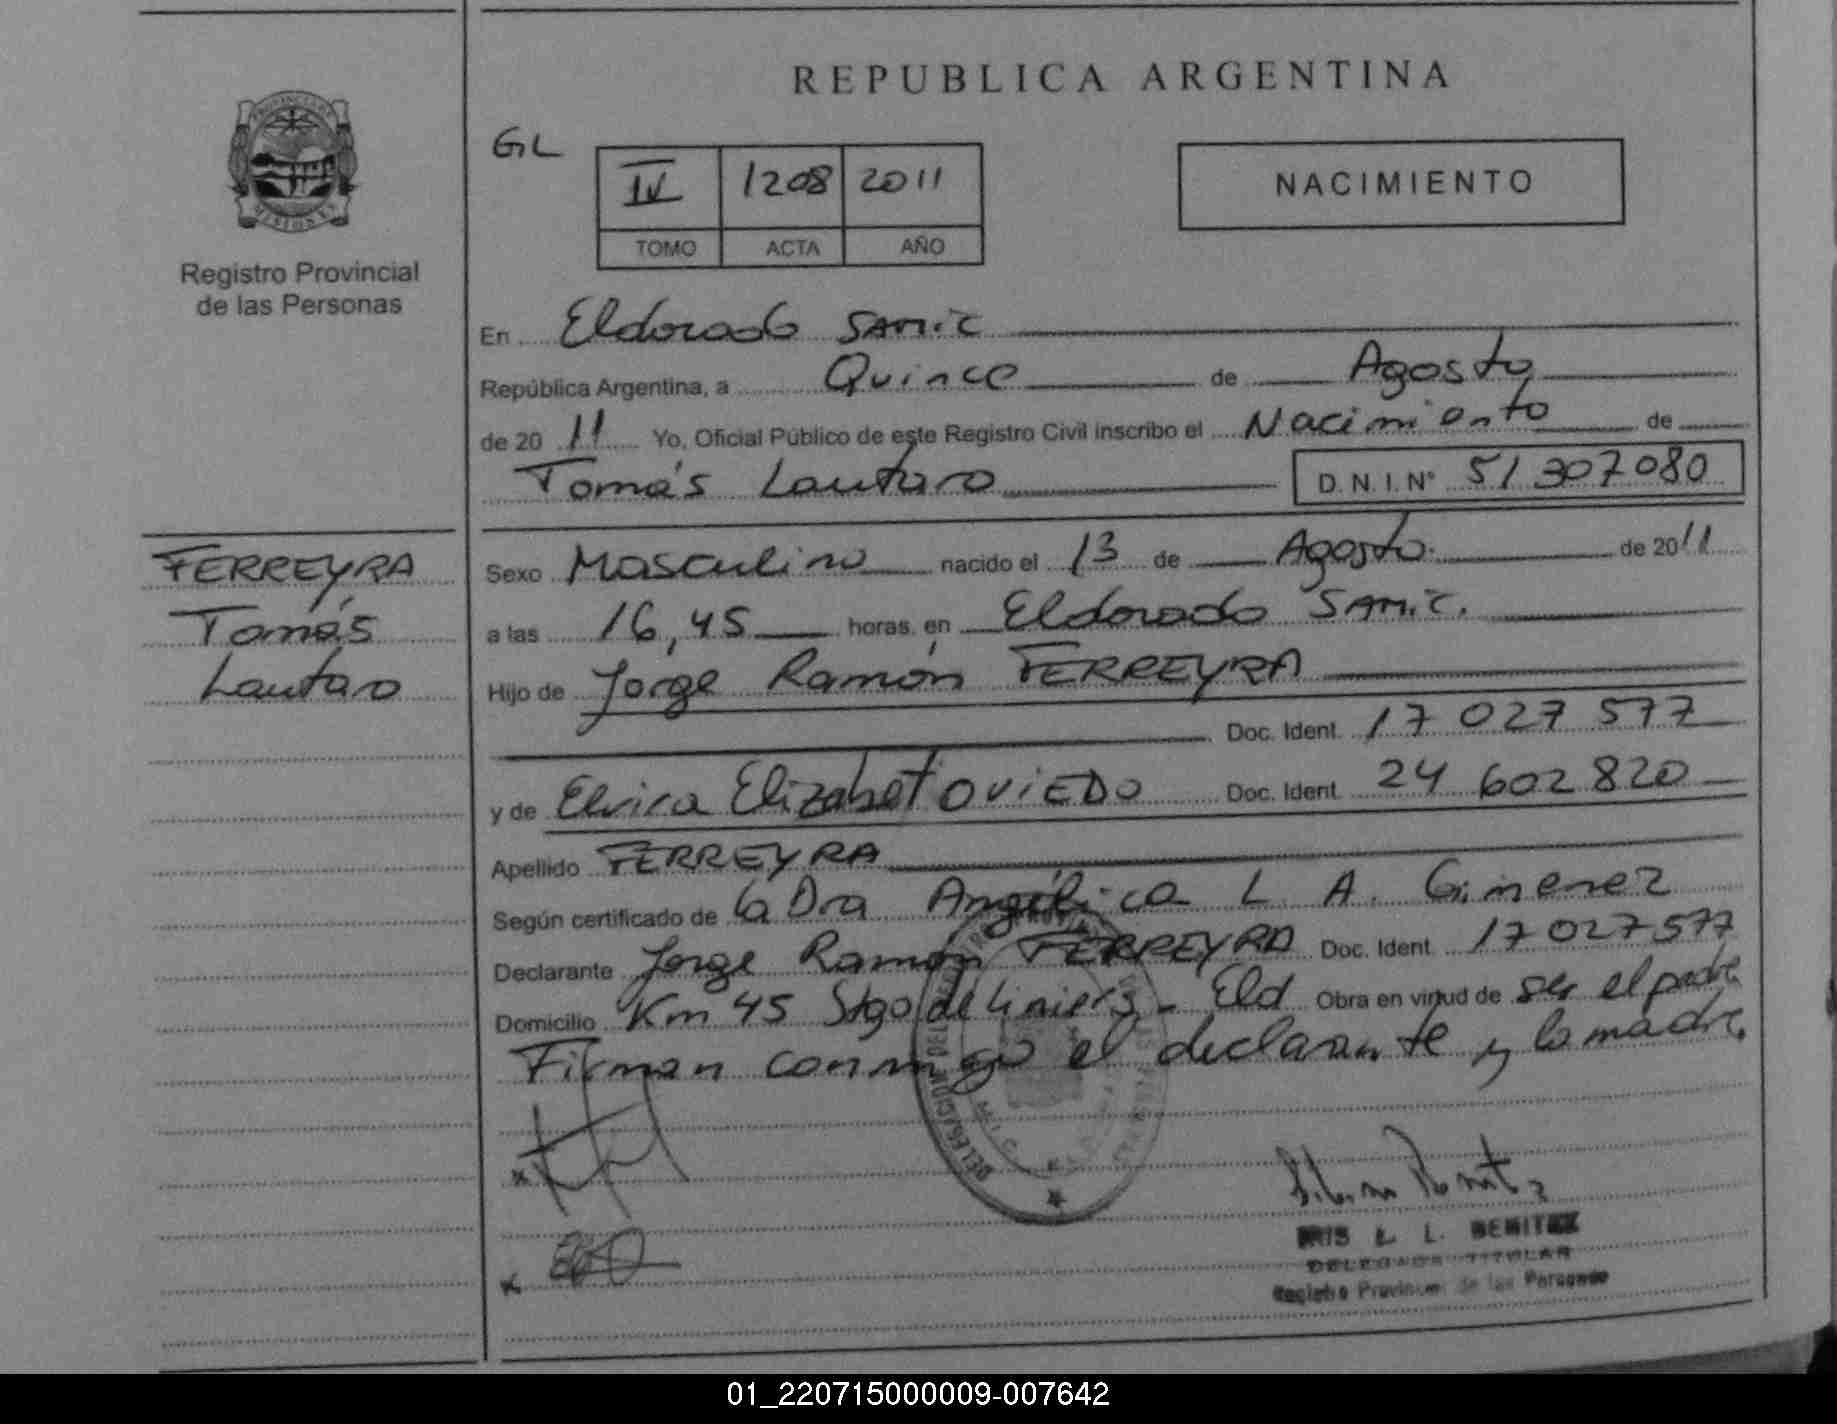 REPUBLICA ARGENTINA
PROVINCIA DE
MISIONES
Registro Provincial
de las Personas
GL
IV 1208 2011
TOMO ACTA AÑO
NACIMIENTO
En Eldorado SAMIC
República Argentina, a Quince de Agosto
de 20 11 Yo, Oficial Público de este Registro Civil inscribo el Nacimiento de
Tomás Lautaro D.N.I.N° 51 307 080
FERREYRA
Tomás
Lautaro
Sexo Masculino nacido el 13 de Agosto de 2011
a las 16,45 horas, en Eldorado SAMIC.
Hijo de Jorge Ramón FERREYRA
Doc. Ident. 17 027 577
y de Elvira Elizabet OVIEDO Doc. Ident. 24 602 820
Apellido FERREYRA
Según certificado de la Dra Angélica L A. Gimenez
Declarante Jorge Ramón FERREYRA Doc. Ident. 17 027 577
Domicilio Km 45 Stgo de Liniers - Eld Obra en virtud de ser el padre
Firman conmigo el declarante y la madre.
IRIS L. L. BENITEZ
DELEGADA TITULAR
Registro Provincial de las Personas
01_220715000009-007642